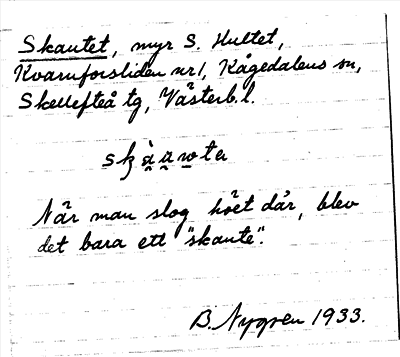 Skautet, myr S. Hultet,
Kvarnforsliden nr 1, Kågedalens sn,
Skellefteå tg, Västerb. l.
När man slog höet där, blev
det bara ett "skaute".
B. Nygren 1933.